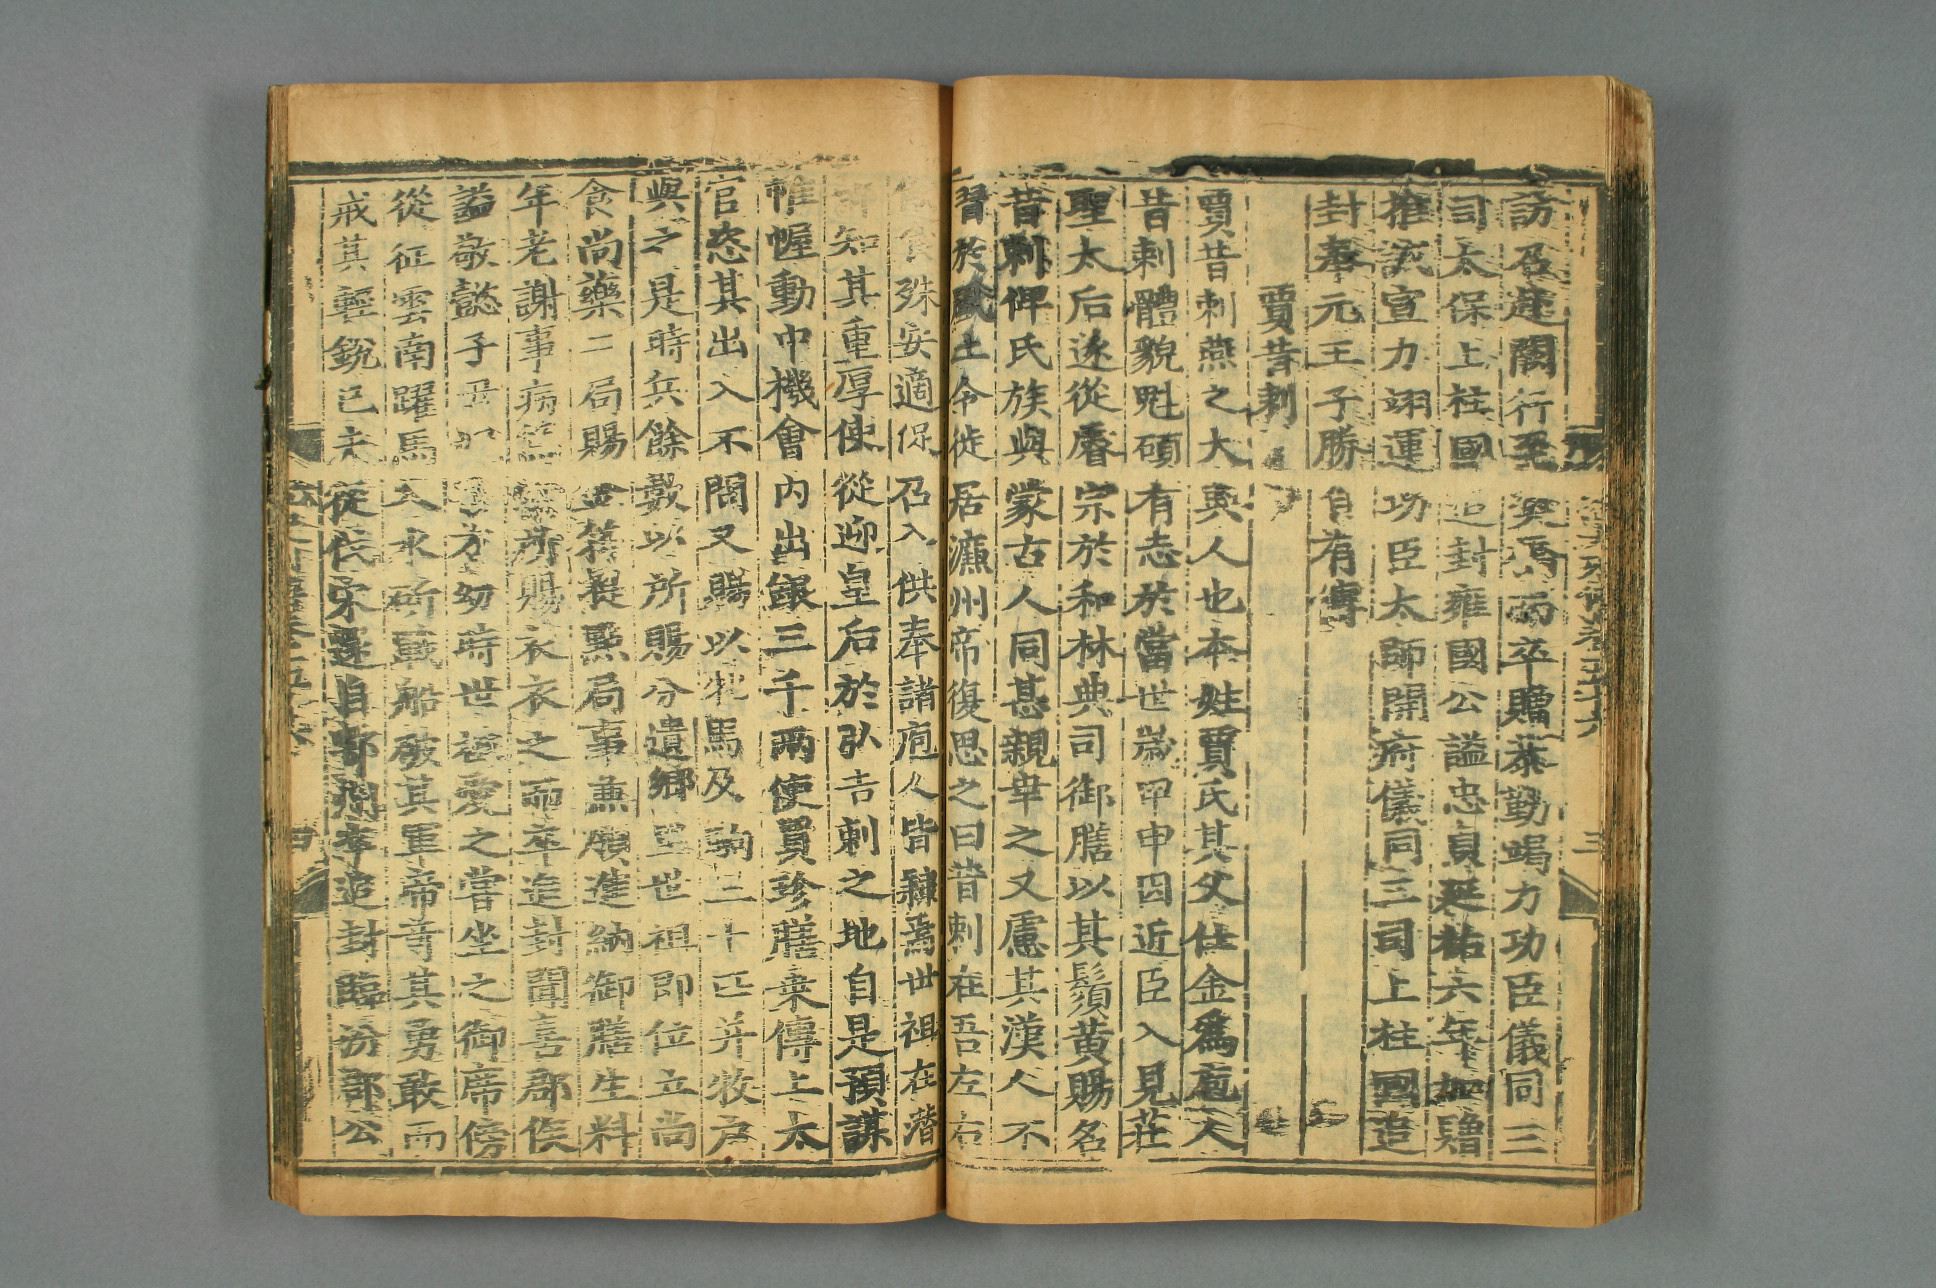 訪召遽闕行至奧魯而卒贈恭勤竭力功臣儀同三
司太保上柱國追封雍國公謚忠貞延祐六年加贈
推誠宣力翊運功臣太師開府儀同三司上柱國追
封奉元王子勝自有傳
賈昔剌
賈昔剌燕之大興人也本姓賈氏其父仕金爲庖人
昔剌體貌魁碩有志於當世歲甲申因近臣入見莊
聖太后遂從睿宗於和林典司御膳以其鬚黃賜名
昔剌俾氏族與蒙古人同甚親幸之又慮其漢人不
習於風土令徙居濂州帝復思之曰昔剌在吾左右
飲食殊安適促召入供奉諸庖人皆隸焉世祖在潛
知其重厚使從迎皇后於弘吉剌之地自是預謀
帷幄動中機會內出銀三千兩使買珍膳來傳上太
官恣其出入不問又賜以牝馬及駒三十匹并牧户
與之是時兵餘數以所賜分遺鄉里世祖即位立尚
食尚藥二局賜金符提點局事兼領進納御膳生料
年老謝事病篤所賜衣衣之而卒追封聞喜郡侯
謚敬懿子丑妮子方幼時世祖愛之嘗坐之御席傍
從征雲南躍馬入水斫戰船破其軍帝奇其勇敢而
戒其輕銳己未從伐宋還自鄂而卒追封臨汾郡公
三
四